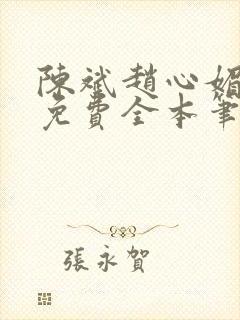 陳斌趙心媚
免費全本筆
張永賀